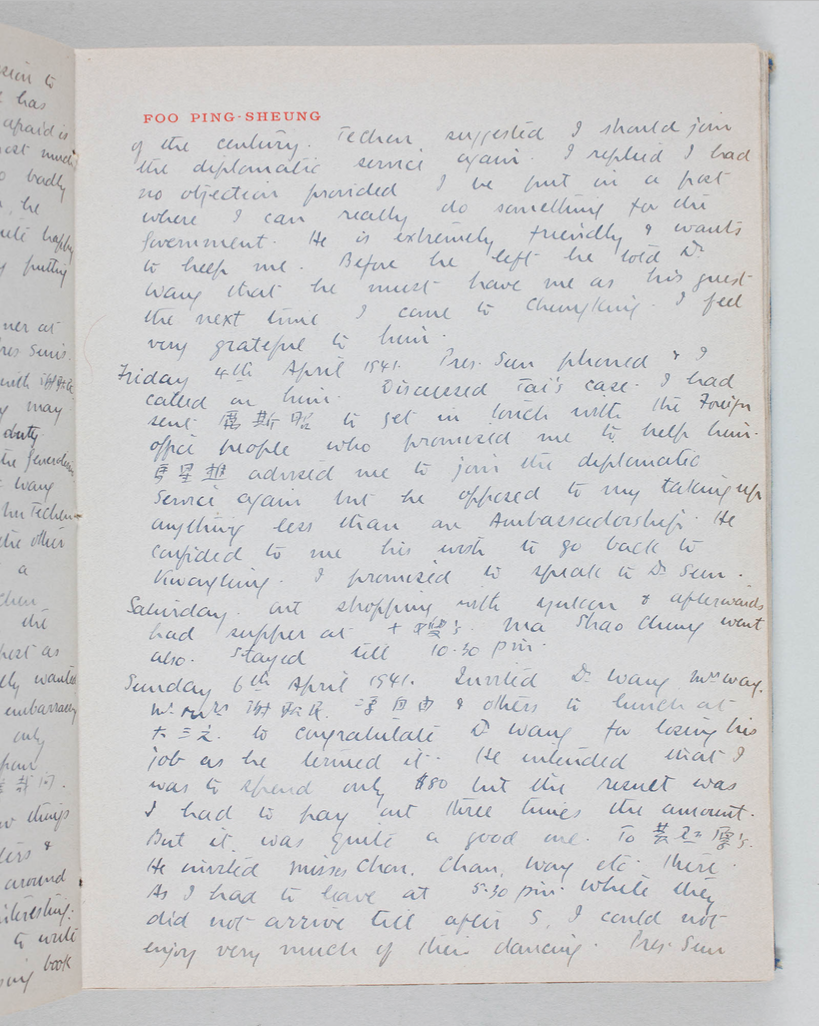 ssion to
has
afraid is
most much
badly
he
quite happy
putting
ner at
Pres Sun's
with
may
duty
the Generalissimo
wang
the other
a
chen
the
host as
wanted
embarrassing
only
things
&
around
interesting:
to write
book
FOO PING-SHEUNG
of the century. Techen suggested I should join
the diplomatic service again. I replied I had
no objection provided I be put in a post
where I can really do something for the
Government. He is extremely friendly & wants
to help me. Before he left he told Dr
Wang that he must have me as his guest
the next time I came to Chungking. I feel
very grateful to him.
Friday 4th April 1941. Pres. Sun phoned & I
called on him. Discussed Tai's case. I had
sent 斯 to get in touch with the Foreign
office people who promised me to help him.
星 advised me to join the diplomatic
Service again but he opposed to my taking up
anything less than an Ambassadorship. He
confided to me his wish to go back to
Kwangtung. I promised to speak to Dr Sun.
Saturday. out shopping with yukon & afterwards
had supper at 's. Ma Shao Cheung went
also. Stayed till 10.30 pm.
Sunday 6th April 1941. Invited Dr Wang Mrs Wang.
Mr. Mrs 自由 & others to lunch at
大三元. to congratulate Dr Wang for losing his
job as he termed it. He intended that I
was to spend only $80 but the result was
I had to pay out three times the amount.
But it was quite a good one. To 's.
He invited Misses Chan, Chan, Wong etc. there.
As I had to leave at 5.30 pm. while they
did not arrive till after 5, I could not
enjoy very much of their dancing. Pres. Sun